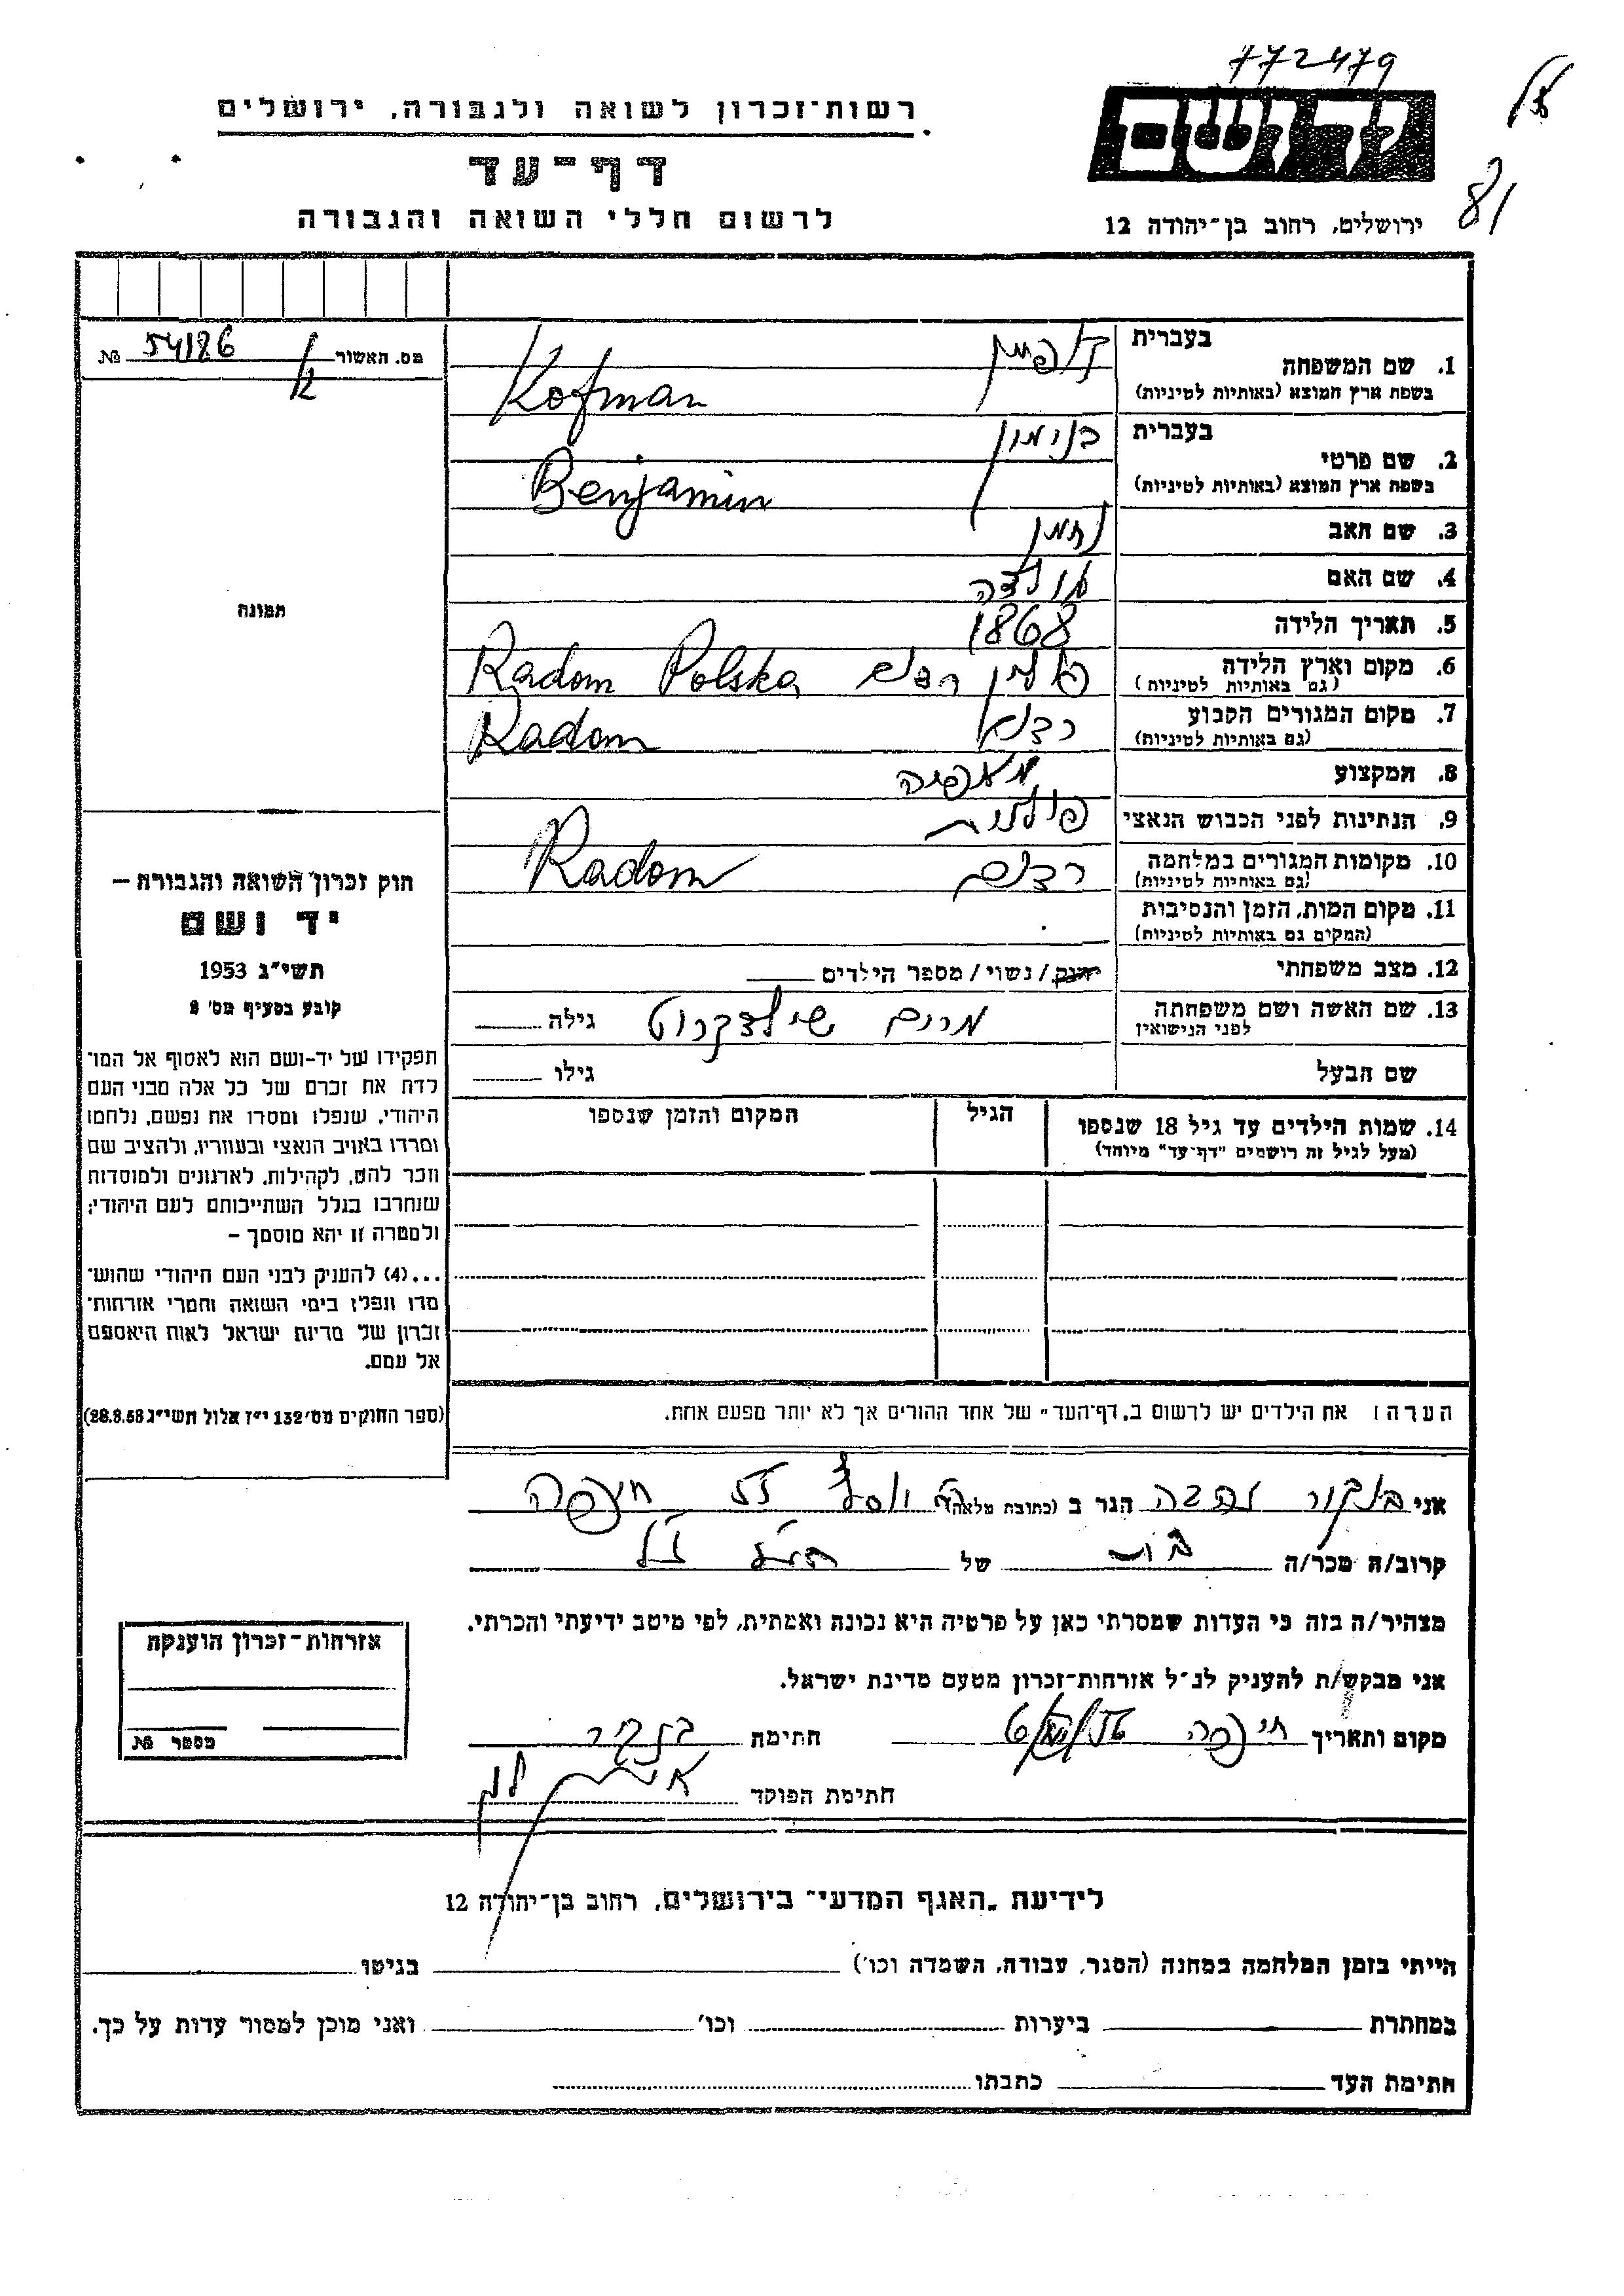 772479
רשות־זכרון לשואה ולגבורה, ירושלים
יד ושם
81
דף־עד
לרשום חללי השואה והגבורה
ירושלים, רחוב בן־יהודה 12
מס. האשור 54186 №
1. שם המשפחה
בעברית קופמן
בשפת ארץ המוצא (באותיות לטיניות) Kofman
2. שם פרטי
בעברית בנימין
בשפת ארץ המוצא (באותיות לטיניות) Benjamin
3. שם האב נחמן
4. שם האם
5. תאריך הלידה 1868
6. מקום וארץ הלידה פולין רדום Radom Polska
(גם באותיות לטיניות)
7. מקום המגורים הקבוע רדום Radom
(גם באותיות לטיניות)
8. המקצוע
9. הנתינות לפני הכבוש הנאצי פולנית
10. מקומות המגורים במלחמה רדום Radom
(גם באותיות לטיניות)
11. מקום המות, הזמן והנסיבות
(המקום גם באותיות לטיניות)
12. מצב משפחתי רווק/נשוי/מספר הילדים
13. שם האשה ושם משפחתה מרים שילדקרוט גילה
לפני הנישואין
שם הבעל גילו
14. שמות הילדים עד גיל 18 שנספו הגיל המקום והזמן שנספו
(מעל לגיל זה רושמים "דף־עד" מיוחד)
הערה: את הילדים יש לרשום ב„דף־העד" של אחד ההורים אך לא יותר מפעם אחת.
תמונה
חוק זכרון השואה והגבורה –
יד ושם
תשי"ג 1953
קובע בסעיף מס' 2
תפקידו של יד-ושם הוא לאסוף אל המו־
לדת את זכרם של כל אלה מבני העם
היהודי, שנפלו ומסרו את נפשם, נלחמו
ומרדו באויב הנאצי ובעוזריו, ולהציב שם
וזכר להם, לקהילות, לארגונים ולמוסדות
שנחרבו בגלל השתייכותם לעם היהודי;
ולמטרה זו יהא מוסמך –
...(4) להעניק לבני העם היהודי שהוש־
מדו ונפלו בימי השואה והמרי אזרחות־
זכרון של מדינת ישראל לאות היאספם
אל עמם.
(ספר החוקים מס' 132 י"ז אלול תשי"ג 28.8.53)
אני הגר ב (כתובת מלאה) חיפה
קרוב/ה מכר/ה של
מצהיר/ה בזה כי העדות שמסרתי כאן על פרטיה היא נכונה ואמתית, לפי מיטב ידיעתי והכרתי.
אני מבקש/ת להעניק לנ"ל אזרחות־זכרון מטעם מדינת ישראל.
מקום ותאריך חיפה חתימה
חתימת הפוקד
אזרחות־זכרון הוענקה
מספר №
לידיעת „האגף המדעי" בירושלים, רחוב בן־יהודה 12
הייתי בזמן המלחמה במחנה (הסגר, עבודה, השמדה וכו') בגיטו
במחתרת ביערות וכו' ואני מוכן למסור עדות על כך.
חתימת העד כתבתו